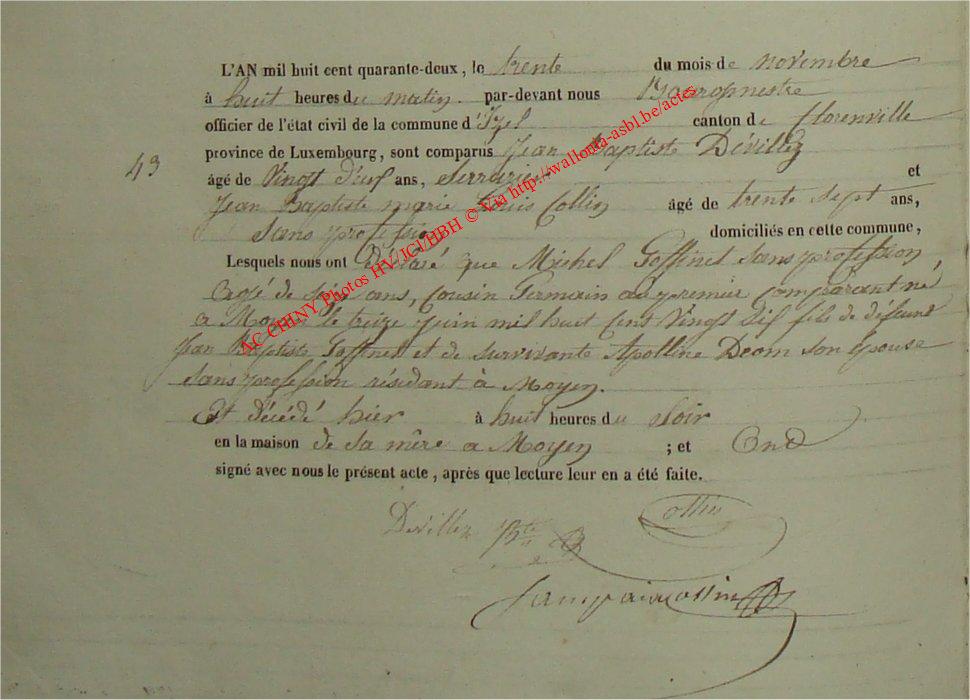 L'AN mil huit cent quarante-deux, le trente du mois de novembre
à huit heures du matin. par-devant nous Bourgmestre
officier de l'état civil de la commune d'Izel canton de florenville
43
province de Luxembourg, sont comparus Jean Baptiste Dévillez
âgé de Vingt neuf ans, Serrurier et
Jean Baptiste marie Louis Collin âgé de trente Sept ans,
Sans profession domiciliés en cette commune,
Lesquels nous ont Déclaré que Michel Goffinet sans profession,
agé de ans, Cousin Germain au premier Comparant né
a Moyen le treize juin mil huit Cent Vingt Six fils de défunt
Jean Baptiste Goffinet et de survivante Apolline Deom son épouse
sans profession résidant à Moyen.
Est décédé hier à huit heures du Soir
en la maison de sa mère a Moyen ; et Ont
signé avec nous le présent acte, après que lecture leur en a été faite.
Dévillez Bte
Collin
AC CHINY Photos HV/JCI/HBH © Via http://wallonia-asbl.be/actes